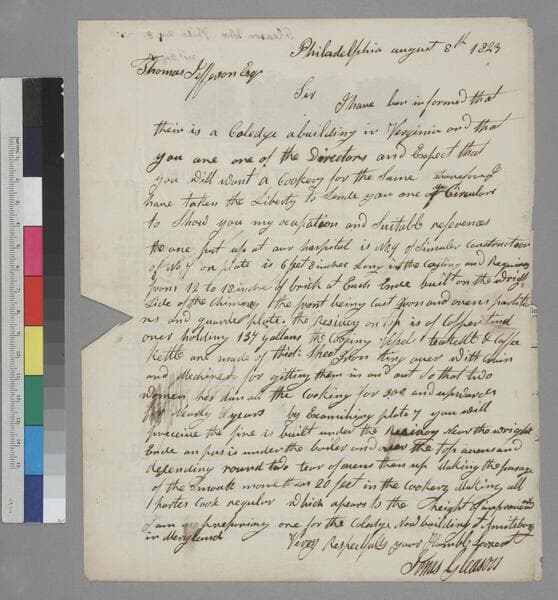 Philadelphia august 8th 1823
Thomas Jefferson Esqr
Sir
I have ben informed that
their is a Coledge abuilding in Verginia and that
you are one of the Directors and Expect that
you will want a Cookery for the Same therefore I
have taken the Liberty to Sende you one of my Circulars
to Show you my ocupation and Suitable references
the one put up at our hospital is of Simuler Construction
of on plate is 6 feet 8 inches Long in the Casting and Requiring
from 12 to 18 inches of brick at Each Ende built on the
Side of the Chimney the front being Cast Iron and ovens
and plate the on top is of Copper tind
over holding 137 gallans the teakettle & Coffe
Kettle are made of Iron
and for gitting them in and out So that two
women has dun all the Cooking for 300 and upwards
for nearly years by Examining plate 7 you will
perceive the fire is built under the near the wright
Ende an pases under the boiler and over the top ovens and
decending round two of ovens them up Making the pasage
of the more than 20 feet in the Cookery Making all
partes Cook reguler which apears to the height of improvement
I am now prepairing one for the Coledge Now building at
in Meryland
Very Respectfuly your Humble
Jonas Gleason